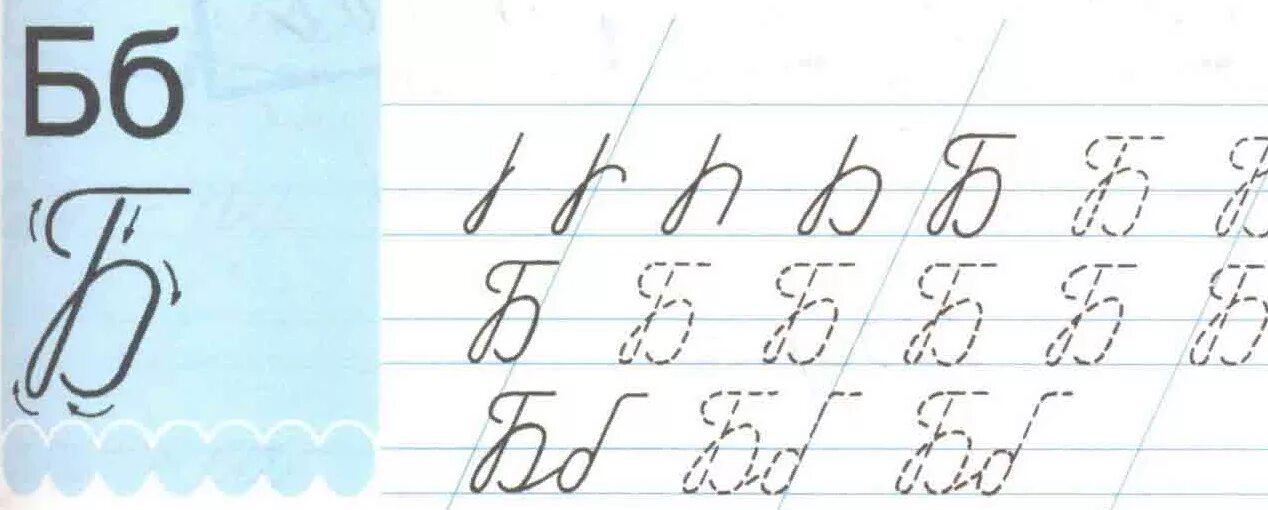 Бб
Б
Б Б Б
Б Б Б Б Б Б
Бб Бб Бб